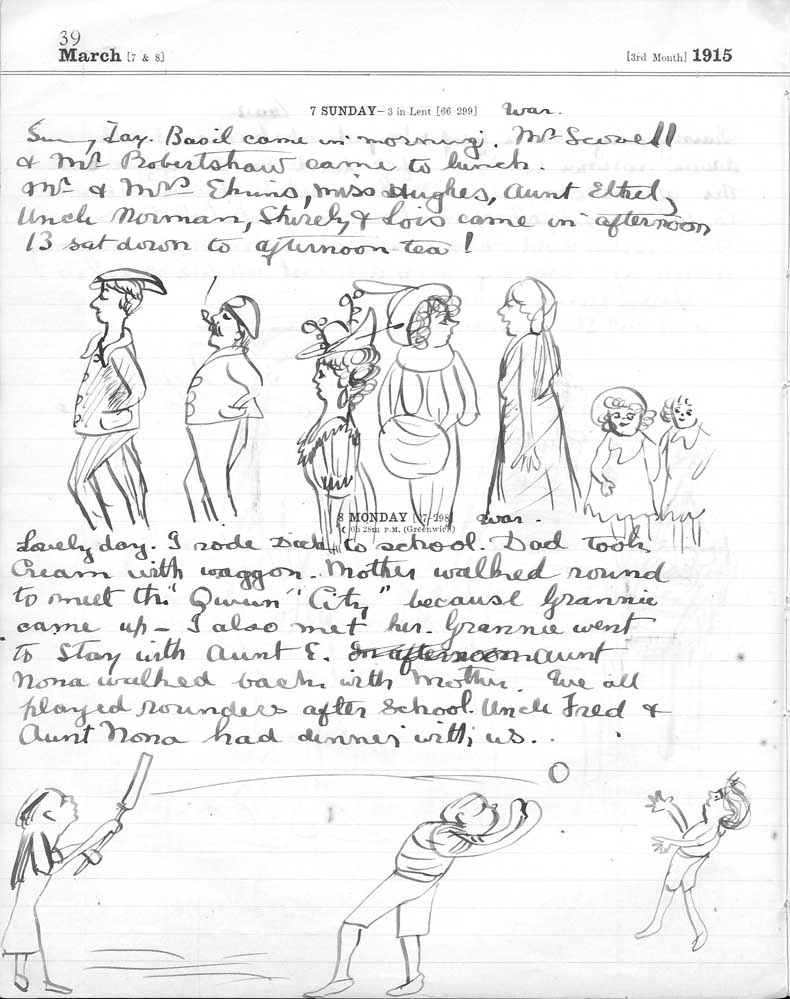 39
March [7 & 8] [3rd Month] 1915
7 SUNDAY—3 in Lent [66-299] War.
Sunny Day. Basil came in morning. Mr Scovell
& Mr Robertshaw came to lunch.
Mr & Mrs Ekins, Miss Hughes, Aunt Ethel,
Uncle Norman, Shirely, & Lois came in afternoon
13 sat down to afternoon tea!
8 MONDAY [67-298] War.
0h 28m P.M. (Greenwich)
Lovely day. I rode Dick to school. Dad took
Cream with waggon. Mother walked round
to meet the "Queen" City" because Grannie
came up — I also met her. Grannie went
to stay with Aunt E. In afternoon Aunt
Nona walked back with Mother. We all
played rounders after school. Uncle Fred &
Aunt Nona had dinner with us..